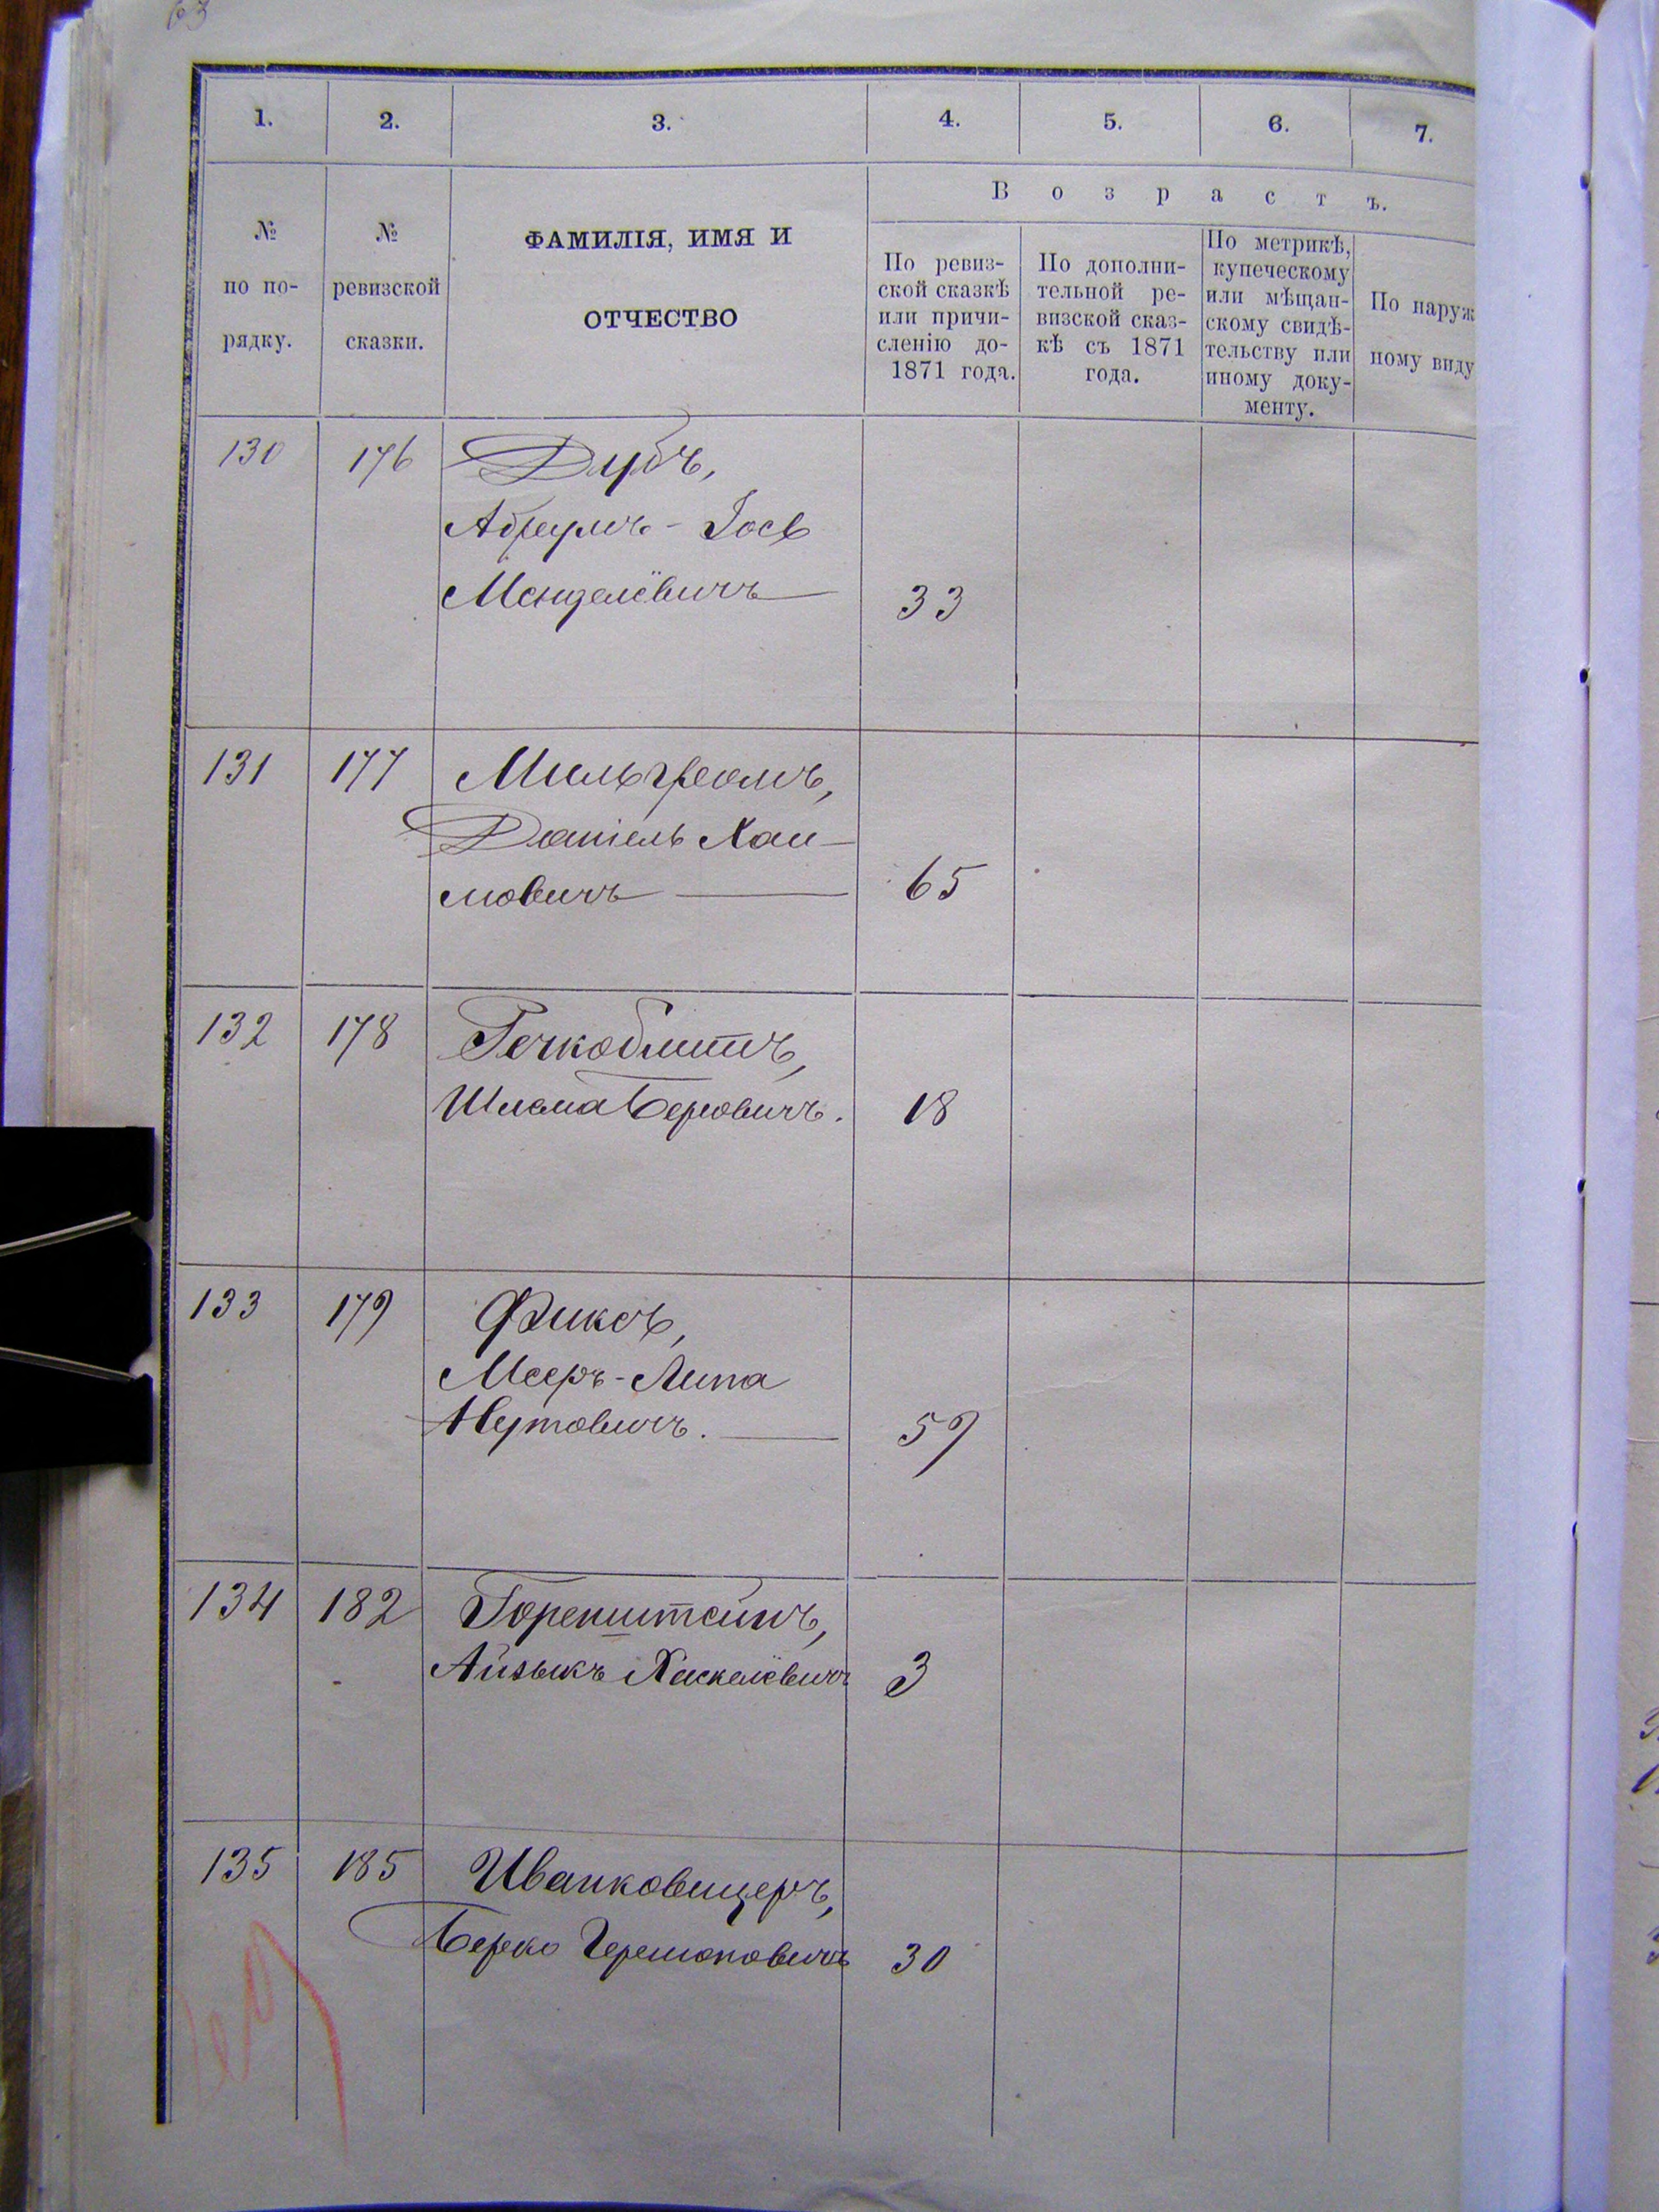 63
1. 2. 3. 4. 5. 6. 7.
В о з р а с т ъ.
№
по по-
рядку.
№
ревизской
сказки.
ФАМИЛІЯ, ИМЯ И
ОТЧЕСТВО
По ревиз-
ской сказкѣ
или причи-
сленію до-
1871 года.
По дополни-
тельной ре-
визской сказ-
кѣ съ 1871
года.
По метрикѣ,
купеческому
или мѣщан-
скому свидѣ-
тельству или
иному доку-
менту.
По наруж
ному виду
130 176 Дубъ,
Абрумъ-Іось
Менделёвичъ 33
131 177 Мильгромъ,
Даніель Хаи-
мовичъ 65
132 178 Речкоблитъ,
Шлема Берковичъ. 18
133 179 Фиксъ,
Мееръ-Липа
Нутовичъ. 59
134 182 Горенштейнъ,
Айзыкъ Хаскелёвичъ 3
135 185 Иванковицеръ,
Берко Гершоновичъ 30